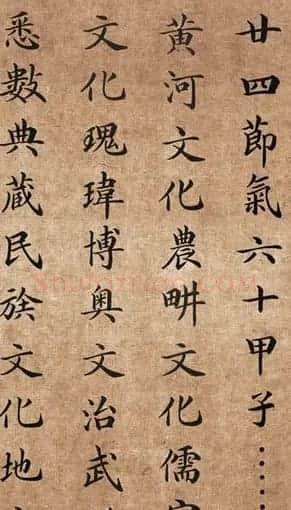 廿四節氣六十甲子……
黃河文化農畊文化儒
文化瑰瑋博奥文治武
悉數典藏民族文化地